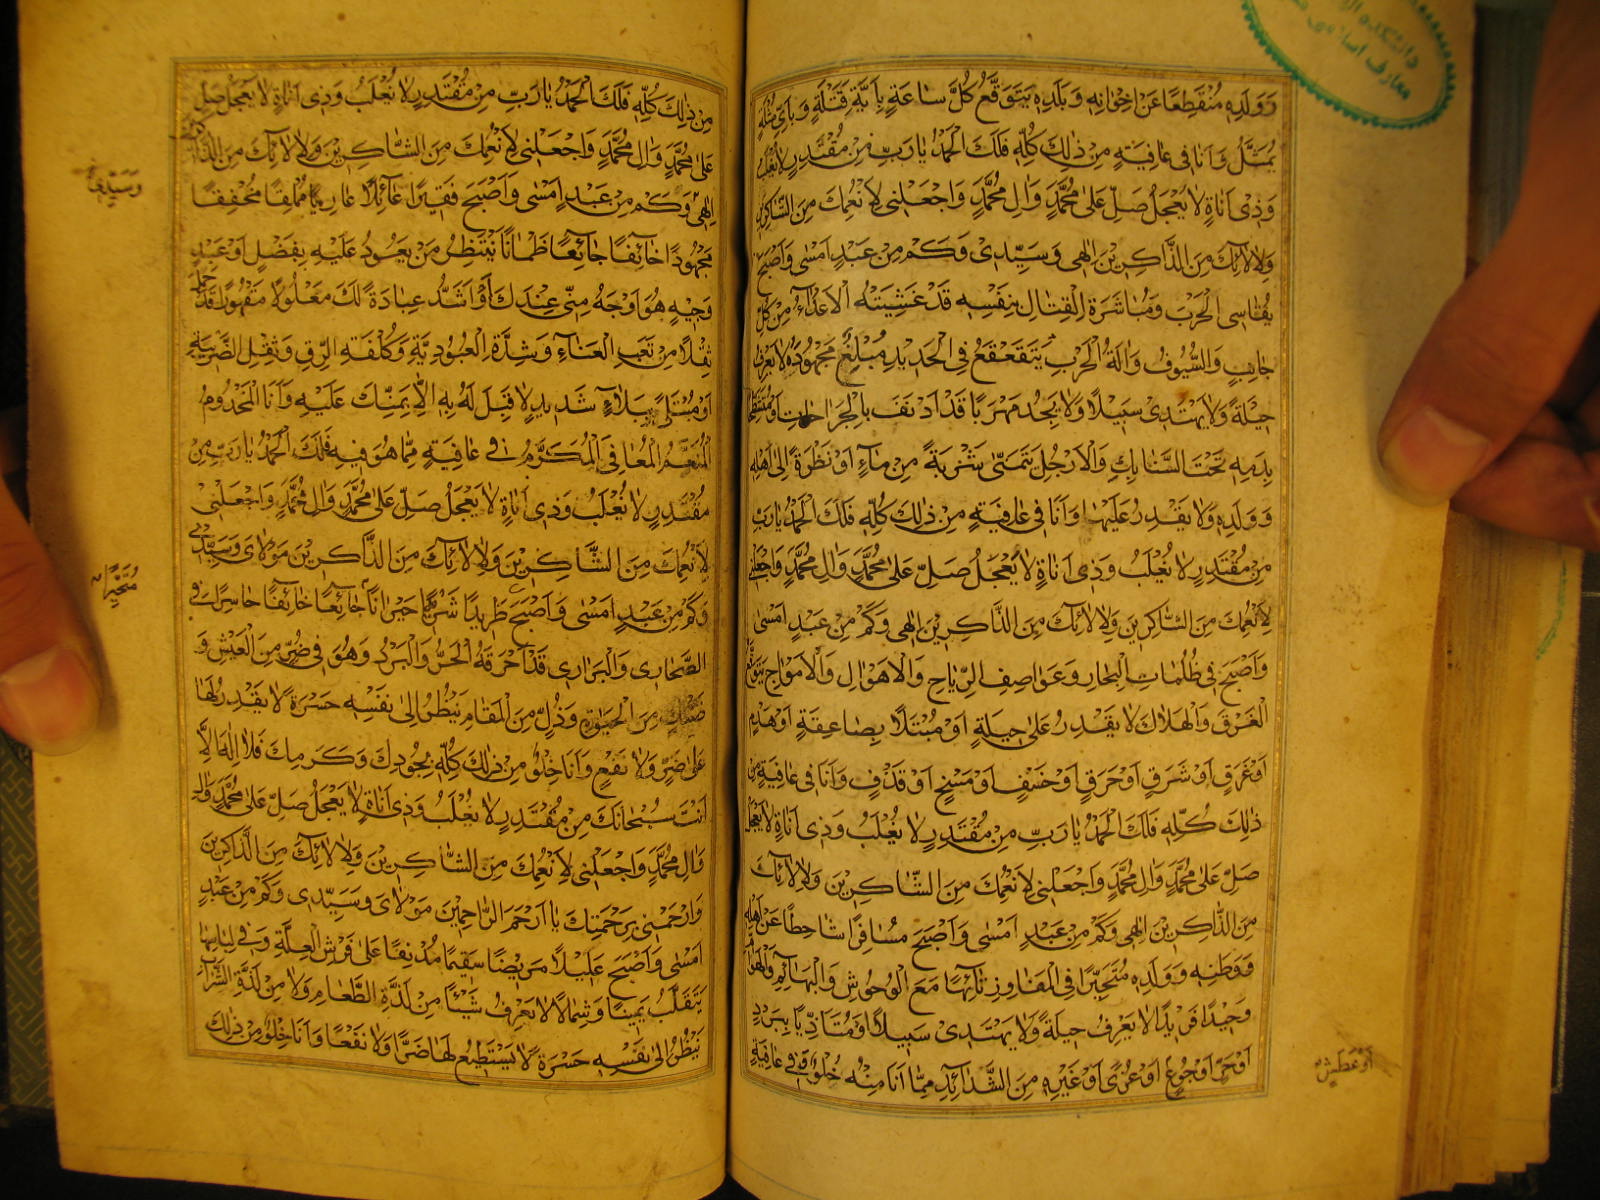 دانشکده
معارف اسلامی
وَوَلَدِهِ مُنْقَطِعًا عَنْ اِخْوَانِهِ وَبَلَدِهِ يَتَوَقَّعُ كُلَّ سَاعَةٍ بِاَيَّةِ قِتْلَةٍ وَبِاَيِّ مُثْلَةٍ
يُمَثَّلُ وَاَنَا فِي عَافِيَةٍ مِنْ ذٰلِكَ كُلِّهِ فَلَكَ الْحَمْدُ يَا رَبِّ مِنْ مُقْتَدِرٍ لَا يُغْلَبُ
وَذِي اَنَاةٍ لَا يَعْجَلُ صَلِّ عَلٰى مُحَمَّدٍ وَاٰلِ مُحَمَّدٍ وَاجْعَلْنِي لِاَنْعُمِكَ مِنَ الشَّاكِرِينَ
وَلِاٰلَائِكَ مِنَ الذَّاكِرِينَ اِلٰهِي وَسَيِّدِي وَكَمْ مِنْ عَبْدٍ اَمْسٰى وَاَصْبَحَ
يُقَاسِي الْحَرْبَ وَمُبَاشَرَةَ الْقِتَالِ بِنَفْسِهِ قَدْ غَشِيَتْهُ الْاَعْدَاءُ مِنْ كُلِّ
جَانِبٍ وَالسُّيُوفُ وَاٰلَةُ الْحَرْبِ يَتَقَعْقَعُ فِي الْحَدِيدِ مَبْلَغَ مَجْهُودِهِ لَا يَعْرِفُ
حِيلَةً وَلَا يَهْتَدِي سَبِيلًا وَلَا يَجِدُ مَهْرَبًا قَدْ اَدْنَفَ بِالْجِرَاحَاتِ اَوْ مُتَشَحِّطًا
بِدَمِهِ تَحْتَ السَّنَابِكِ وَالْاَرْجُلِ يَتَمَنّٰى شَرْبَةً مِنْ مَاءٍ اَوْ نَظْرَةً اِلٰى اَهْلِهِ
وَوَلَدِهِ وَلَا يَقْدِرُ عَلَيْهَا وَاَنَا فِي عَافِيَةٍ مِنْ ذٰلِكَ كُلِّهِ فَلَكَ الْحَمْدُ يَا رَبِّ
مِنْ مُقْتَدِرٍ لَا يُغْلَبُ وَذِي اَنَاةٍ لَا يَعْجَلُ صَلِّ عَلٰى مُحَمَّدٍ وَاٰلِ مُحَمَّدٍ وَاجْعَلْنِي
لِاَنْعُمِكَ مِنَ الشَّاكِرِينَ وَلِاٰلَائِكَ مِنَ الذَّاكِرِينَ اِلٰهِي وَكَمْ مِنْ عَبْدٍ اَمْسٰى
وَاَصْبَحَ فِي ظُلُمَاتِ الْبِحَارِ وَعَوَاصِفِ الرِّيَاحِ وَالْاَهْوَالِ وَالْاَمْوَاجِ يَتَوَقَّعُ
الْغَرَقَ وَالْهَلَاكَ لَا يَقْدِرُ عَلٰى حِيلَةٍ اَوْ مُبْتَلًا بِصَاعِقَةٍ اَوْ هَدْمٍ
اَوْ غَرَقٍ اَوْ شَرَقٍ اَوْ حَرَقٍ اَوْ خَسْفٍ اَوْ مَسْخٍ اَوْ قَذْفٍ وَاَنَا فِي عَافِيَةٍ مِنْ
ذٰلِكَ كُلِّهِ فَلَكَ الْحَمْدُ يَا رَبِّ مِنْ مُقْتَدِرٍ لَا يُغْلَبُ وَذِي اَنَاةٍ لَا يَعْجَلُ
صَلِّ عَلٰى مُحَمَّدٍ وَاٰلِ مُحَمَّدٍ وَاجْعَلْنِي لِاَنْعُمِكَ مِنَ الشَّاكِرِينَ وَلِاٰلَائِكَ
مِنَ الذَّاكِرِينَ اِلٰهِي وَكَمْ مِنْ عَبْدٍ اَمْسٰى وَاَصْبَحَ مُسَافِرًا شَاحِطًا عَنْ اَهْلِهِ
وَوَطَنِهِ وَوَلَدِهِ مُتَحَيِّرًا فِي الْمَفَاوِزِ تَائِهًا مَعَ الْوُحُوشِ وَالْبَهَائِمِ وَالْهَوَامِّ
وَحِيدًا فَرِيدًا لَا يَعْرِفُ حِيلَةً وَلَا يَهْتَدِي سَبِيلًا اَوْ مُتَاَذِّيًا بِبَرْدٍ
اَوْ حَرٍّ اَوْ جُوعٍ اَوْ عُرْيٍ اَوْ غَيْرِهِ مِنَ الشَّدَائِدِ مِمَّا اَنَا مِنْهُ خِلْوٌ فِي عَافِيَةٍ
اَوْ عَطَشٍ
مِنْ ذٰلِكَ كُلِّهِ فَلَكَ الْحَمْدُ يَا رَبِّ مِنْ مُقْتَدِرٍ لَا يُغْلَبُ وَذِي اَنَاةٍ لَا يَعْجَلُ صَلِّ
عَلٰى مُحَمَّدٍ وَاٰلِ مُحَمَّدٍ وَاجْعَلْنِي لِاَنْعُمِكَ مِنَ الشَّاكِرِينَ وَلِاٰلَائِكَ مِنَ الذَّاكِرِينَ
وَسَيِّدِي
اِلٰهِي وَكَمْ مِنْ عَبْدٍ اَمْسٰى وَاَصْبَحَ فَقِيرًا عَائِلًا عَارِيًا مُمْلِقًا مُخْفِقًا
مَجْهُودًا خَائِفًا جَائِعًا ظَمْاٰنًا يَنْتَظِرُ مَنْ يَعُودُ عَلَيْهِ بِفَضْلٍ اَوْ عَبْدٍ
وَجِيهٍ هُوَ اَوْجَهُ مِنِّي عِنْدَكَ اَوْ اَشَدُّ عِبَادَةً لَكَ مَغْلُولًا مَقْهُورًا قَدْ حُمِّلَ
ثِقْلًا مِنْ تَعَبِ الْعَنَاءِ وَشِدَّةِ الْعُبُودِيَّةِ وَكُلْفَةِ الرِّقِّ وَثِقْلِ الضَّرِيبَةِ
اَوْ مُبْتَلًى بِبَلَاءٍ شَدِيدٍ لَا قِبَلَ لَهُ بِهِ اِلَّا بِمَنِّكَ عَلَيْهِ وَاَنَا الْمَخْدُومُ
الْمُنَعَّمُ الْمُعَافَى الْمُكَرَّمُ فِي عَافِيَةٍ مِمَّا هُوَ فِيهِ فَلَكَ الْحَمْدُ يَا رَبِّ مِنْ
مُقْتَدِرٍ لَا يُغْلَبُ وَذِي اَنَاةٍ لَا يَعْجَلُ صَلِّ عَلٰى مُحَمَّدٍ وَاٰلِ مُحَمَّدٍ وَاجْعَلْنِي
لِاَنْعُمِكَ مِنَ الشَّاكِرِينَ وَلِاٰلَائِكَ مِنَ الذَّاكِرِينَ مَوْلَايَ وَسَيِّدِي
مُتَحَيِّرًا
وَكَمْ مِنْ عَبْدٍ اَمْسٰى وَاَصْبَحَ طَرِيدًا شَرِيدًا حَيْرَانًا جَائِعًا خَائِفًا حَاسِرًا فِي
الصَّحَارِي وَالْبَرَارِي قَدْ اَحْرَقَهُ الْحَرُّ وَالْبَرْدُ وَهُوَ فِي ضُرٍّ مِنَ الْعَيْشِ وَ
ضَنْكٍ مِنَ الْحَيٰوةِ وَذُلٍّ مِنَ الْمَقَامِ يَنْظُرُ اِلٰى نَفْسِهِ حَسْرَةً لَا يَقْدِرُ لَهَا
عَلٰى ضَرٍّ وَلَا نَفْعٍ وَاَنَا خِلْوٌ مِنْ ذٰلِكَ كُلِّهِ بِجُودِكَ وَكَرَمِكَ فَلَا اِلٰهَ اِلَّا
اَنْتَ سُبْحَانَكَ مِنْ مُقْتَدِرٍ لَا يُغْلَبُ وَذِي اَنَاةٍ لَا يَعْجَلُ صَلِّ عَلٰى مُحَمَّدٍ وَاٰلِ
وَاٰلِ مُحَمَّدٍ وَاجْعَلْنِي لِاَنْعُمِكَ مِنَ الشَّاكِرِينَ وَلِاٰلَائِكَ مِنَ الذَّاكِرِينَ
وَارْحَمْنِي بِرَحْمَتِكَ يَا اَرْحَمَ الرَّاحِمِينَ مَوْلَايَ وَسَيِّدِي وَكَمْ مِنْ عَبْدٍ
اَمْسٰى وَاَصْبَحَ عَلِيلًا مَرِيضًا سَقِيمًا مُدْنِفًا عَلٰى فُرُشِ الْعِلَّةِ وَفِي لِبَاسِهَا
يَتَقَلَّبُ يَمِينًا وَشِمَالًا لَا يَعْرِفُ شَيْئًا مِنْ لَذَّةِ الطَّعَامِ وَلَا مِنْ لَذَّةِ الشَّرَابِ
يَنْظُرُ اِلٰى نَفْسِهِ حَسْرَةً لَا يَسْتَطِيعُ لَهَا ضَرًّا وَلَا نَفْعًا وَاَنَا خِلْوٌ مِنْ ذٰلِكَ